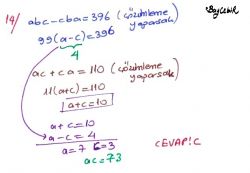 Bayçebir
14/ abc-cba=396 (çözümleme yaparsak)
99(a-c)=396
4
ac+ca=110 (çözümleme yaparsak)
11(a+c)=110
a+c=10
a+c=10
a-c=4
a=7 c=3
ac=73
CEVAP: C